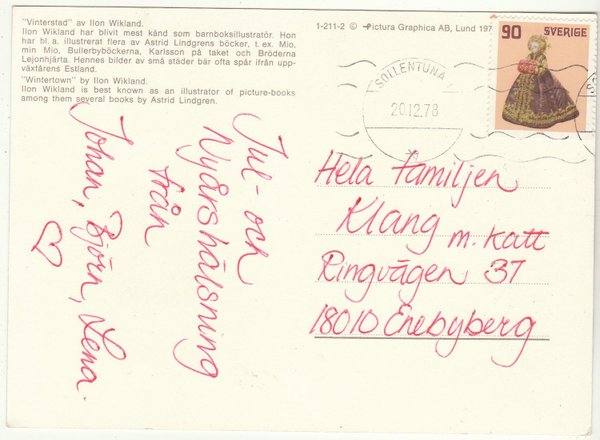 "Vinterstad" av Ilon Wikland.
Ilon Wikland har blivit mest känd som barnboksillustratör. Hon
har bl. a. illustrerat flera av Astrid Lindgrens böcker, t. ex. Mio,
min Mio, Bullerbyböckerna, Karlsson på taket och Bröderna
Lejonhjärta. Hennes bilder av små städer bär ofta spår ifrån upp-
växtårens Estland.
"Wintertown" by Ilon Wikland.
Ilon Wikland is best known as an illustrator of picture-books
among them several books by Astrid Lindgren.
1-211-2 © Pictura Graphica AB, Lund 197
90 SVERIGE
SOLLENTUNA
20.12.78
Jul- och
Nyårshälsning
från
Johan, Björn, Lena.
Hela familjen
Klang m. katt
Ringvägen 37
18010 Enebyberg